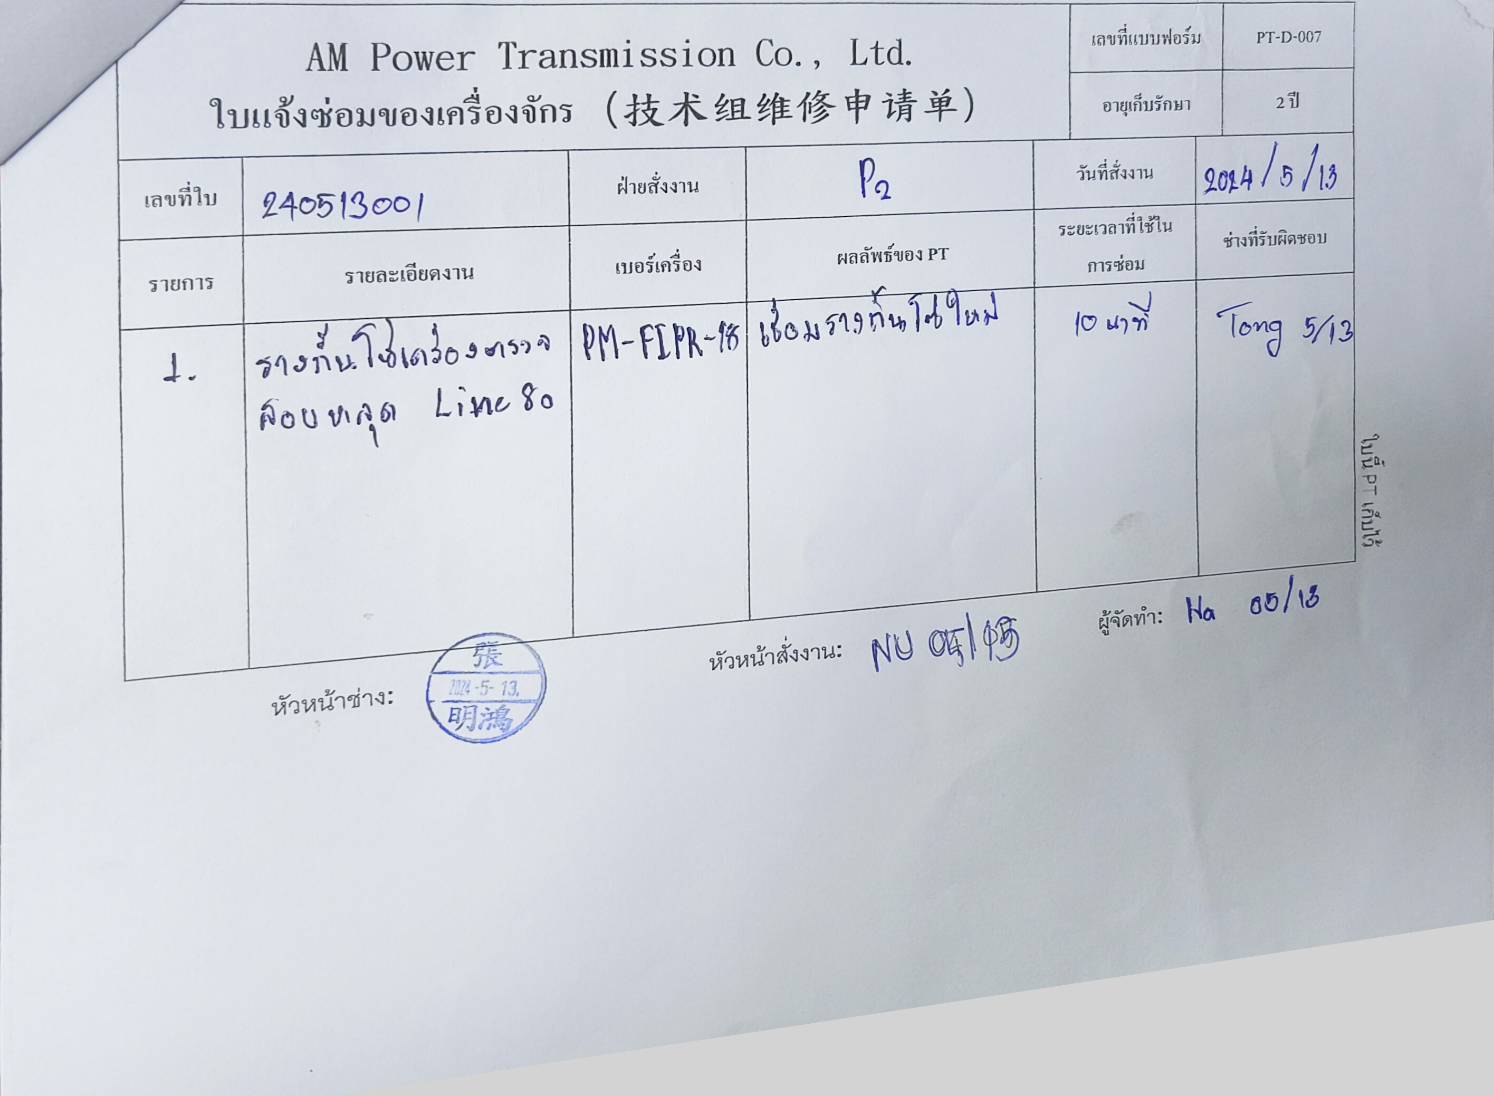 AM Power Transmission Co., Ltd.
ใบแจ้งซ่อมของเครื่องจักร (技术组维修申请单)
เลขที่แบบฟอร์ม PT-D-007
อายุเก็บรักษา 2 ปี
เลขที่ใบ 240513001 ฝ่ายสั่งงาน P2 วันที่สั่งงาน 2024/5/13
รายการ รายละเอียดงาน เบอร์เครื่อง ผลลัพธ์ของ PT ระยะเวลาที่ใช้ใน
การซ่อม ช่างที่รับผิดชอบ
1. รางกั้นโซ่เครื่องตรวจ PM-FIPR-18 เชื่อมรางกั้นโซ่ใหม่ 10 นาที Tong 5/13
สอบหลุด Line 80
ใบนี้ PT เก็บไว้
หัวหน้าช่าง: 張
2024-5-13.
明鴻
หัวหน้าสั่งงาน: NU
ผู้จัดทำ: Na 05/13